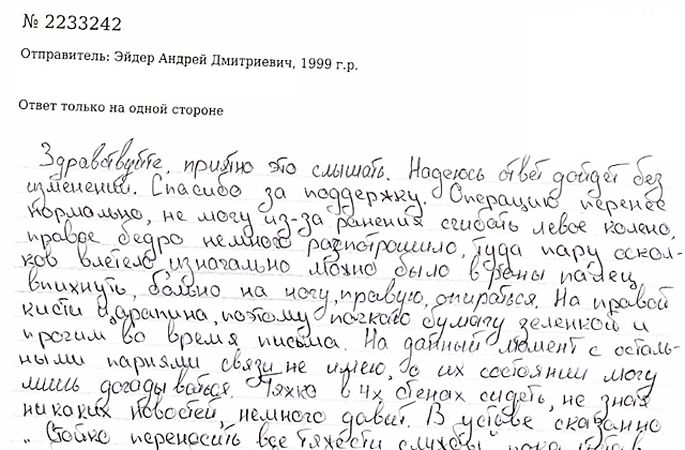 № 2233242
Отправитель: Эйдер Андрей Дмитриевич, 1999 г.р.
Ответ только на одной стороне
Здравствуйте, приятно это слышать. Надеюсь ответ дойдет без
изменений. Спасибо за поддержку. Операцию перенес
нормально, не могу из-за ранения сгибать левое колено,
правое бедро немного распотрошило, туда пару оскол-
ков влетело, изначально можно было в раны палец
впихнуть, больно на ногу, правую, опираться. На правой
кисти царапина, поэтому пачкаю бумагу зеленкой и
прочим во время письма. На данный момент с осталь-
ными парнями связи не имею, о их состоянии могу
лишь догадываться. Тяжко в 4х стенах сидеть, не зная
никаких новостей, немного давит. В уставе сказанно
"Стойко переносить все тяжести службы" пока